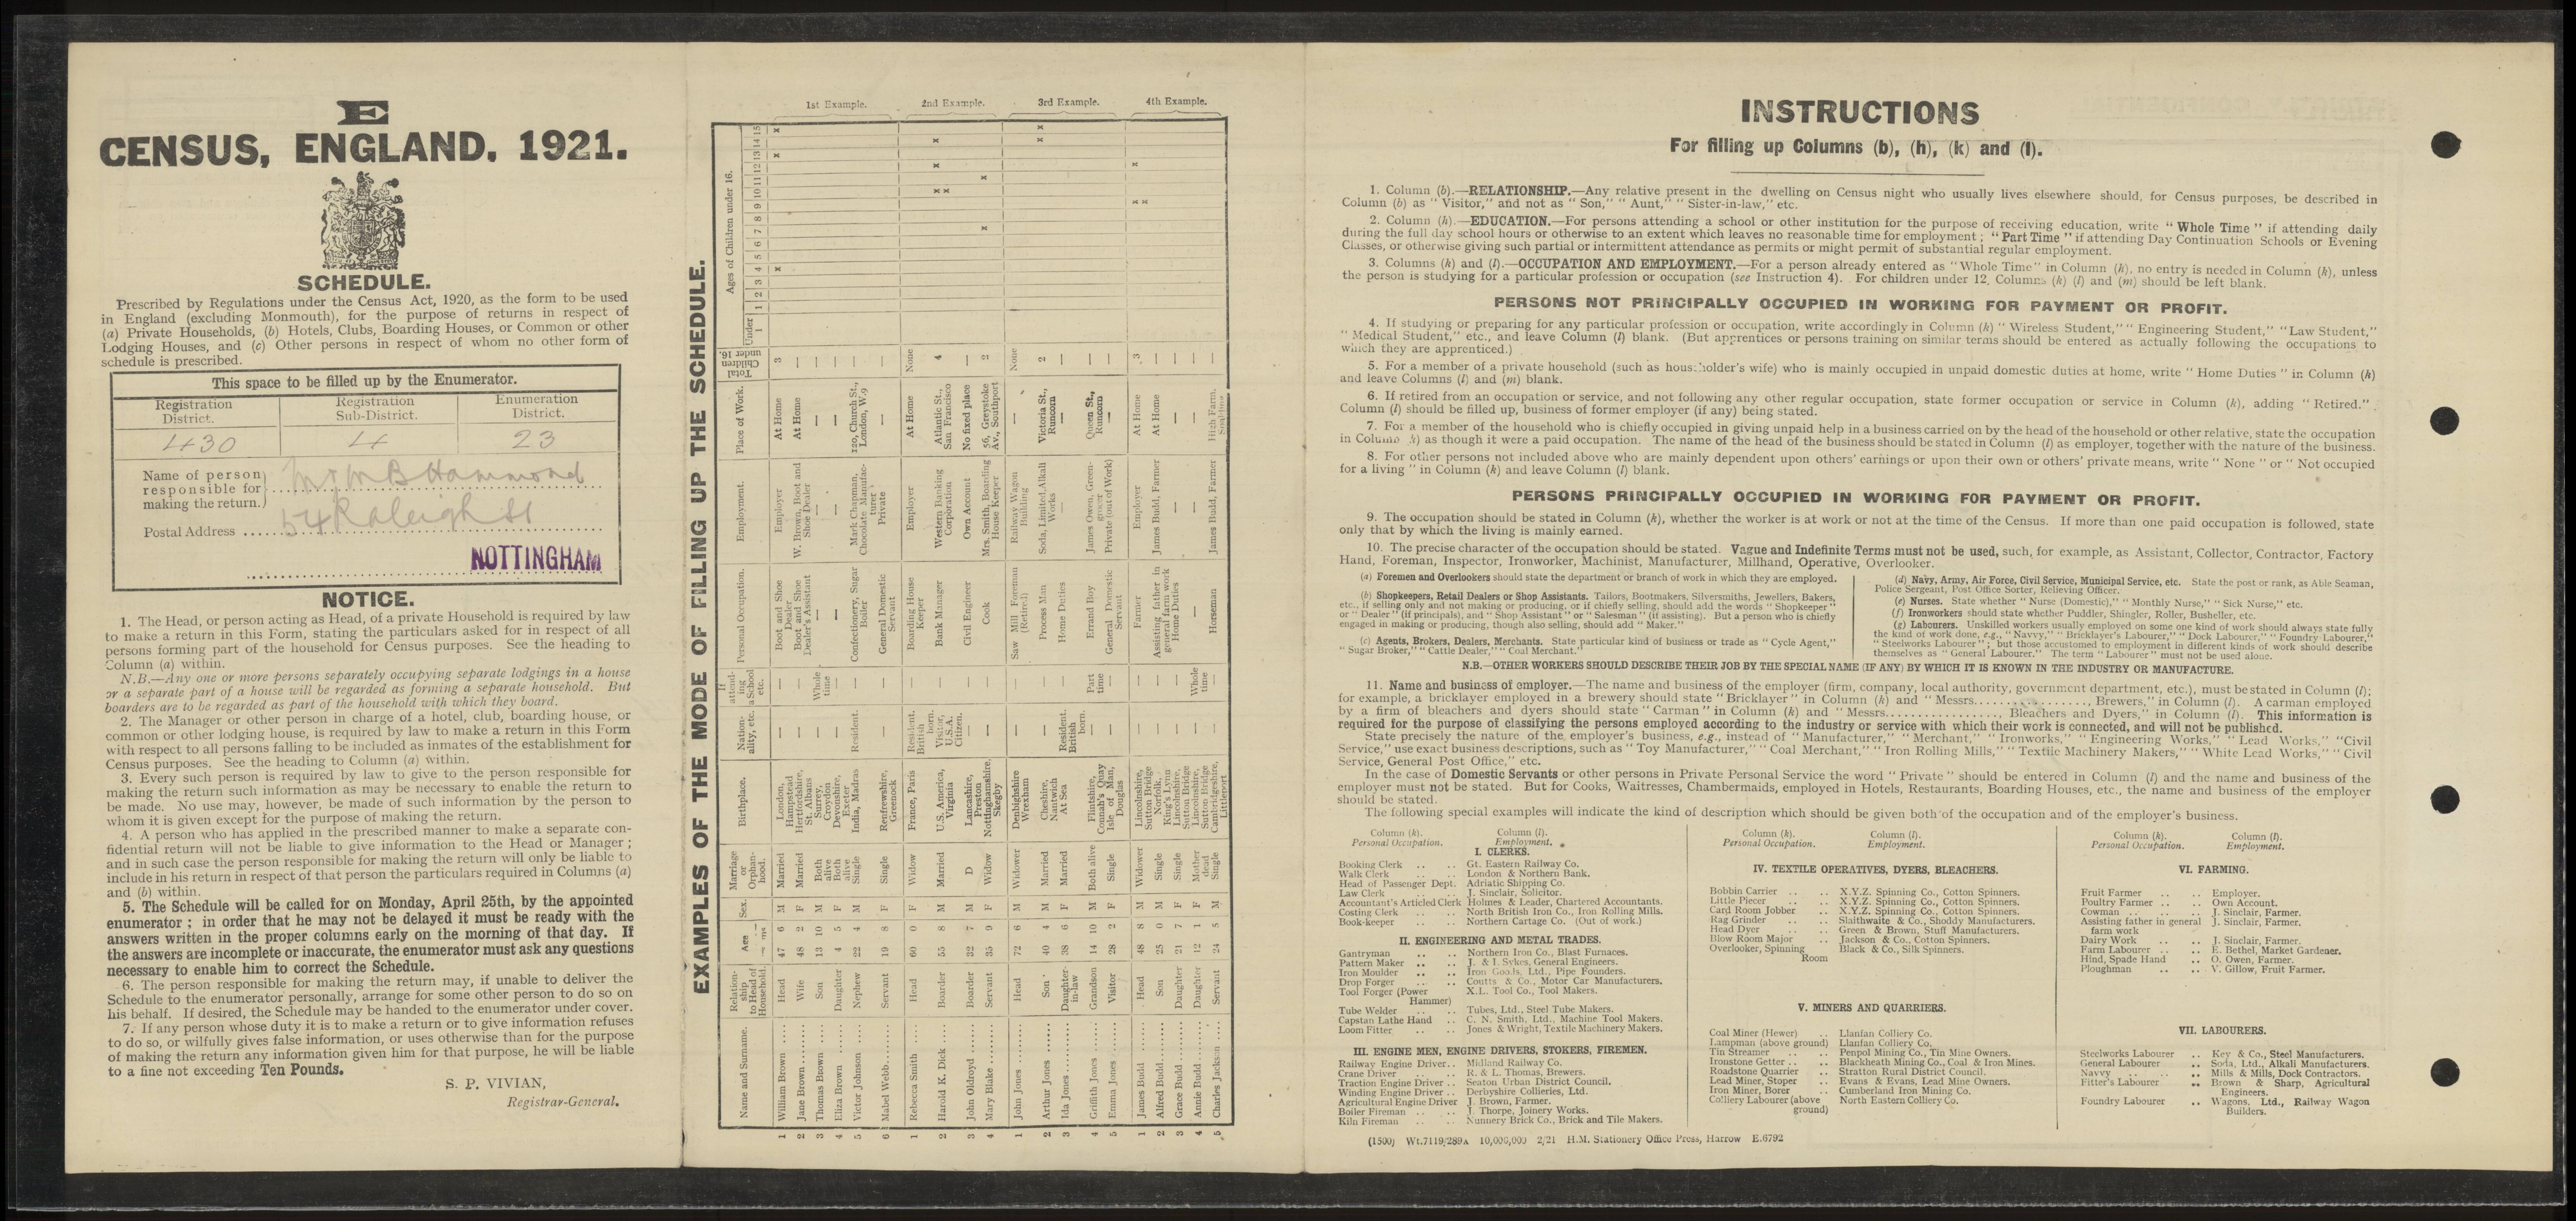 E
CENSUS, ENGLAND, 1921.
SCHEDULE.
Prescribed by Regulations under the Census Act, 1920, as the form to be used
in England (excluding Monmouth), for the purpose of returns in respect of
(a) Private Households, (b) Hotels, Clubs, Boarding Houses, or Common or other
Lodging Houses, and (c) Other persons in respect of whom no other form of
schedule is prescribed.
This space to be filled up by the Enumerator.
Registration District. Registration Sub-District. Enumeration District.
430 4 23
Name of person responsible for making the return. Mr W B Hammond
Postal Address 54 Raleigh St
NOTTINGHAM
NOTICE.
1. The Head, or person acting as Head, of a private Household is required by law
to make a return in this Form, stating the particulars asked for in respect of all
persons forming part of the household for Census purposes. See the heading to
Column (a) within.
N.B.—Any one or more persons separately occupying separate lodgings in a house
or a separate part of a house will be regarded as forming a separate household. But
boarders are to be regarded as part of the household with which they board.
2. The Manager or other person in charge of a hotel, club, boarding house, or
common or other lodging house, is required by law to make a return in this Form
with respect to all persons falling to be included as inmates of the establishment for
Census purposes. See the heading to Column (a) within.
3. Every such person is required by law to give to the person responsible for
making the return such information as may be necessary to enable the return to
be made. No use may, however, be made of such information by the person to
whom it is given except for the purpose of making the return.
4. A person who has applied in the prescribed manner to make a separate con-
fidential return will not be liable to give information to the Head or Manager ;
and in such case the person responsible for making the return will only be liable to
include in his return in respect of that person the particulars required in Columns (a)
and (b) within.
5. The Schedule will be called for on Monday, April 25th, by the appointed
enumerator ; in order that he may not be delayed it must be ready with the
answers written in the proper columns early on the morning of that day. If
the answers are incomplete or inaccurate, the enumerator must ask any questions
necessary to enable him to correct the Schedule.
6. The person responsible for making the return may, if unable to deliver the
Schedule to the enumerator personally, arrange for some other person to do so on
his behalf. If desired, the Schedule may be handed to the enumerator under cover.
7. If any person whose duty it is to make a return or to give information refuses
to do so, or wilfully gives false information, or uses otherwise than for the purpose
of making the return any information given him for that purpose, he will be liable
to a fine not exceeding Ten Pounds.
S. P. VIVIAN,
Registrar-General.
EXAMPLES OF THE MODE OF FILLING UP THE SCHEDULE.
Name and Surname. Relationship to Head of Household. Age Sex. Marriage or Orphanhood. Birthplace. Nationality, etc. If attending a School etc. Personal Occupation. Employment. Place of Work. Total Children under 16. Ages of Children under 16.
Under 1 1 2 3 4 5 6 7 8 9 10 11 12 13 14 15
1st Example.
1 William Brown Head 47 6 M Married London, Hampstead — — Boot and Shoe Dealer Employer At Home 3 x x x
2 Jane Brown Wife 48 2 F Married Hertfordshire, St. Albans — — Boot and Shoe Dealer's Assistant W. Brown, Boot and Shoe Dealer At Home —
3 Thomas Brown Son 13 10 M Both alive Surrey, Croydon — Whole time — — — —
4 Eliza Brown Daughter 4 5 F Both alive Devonshire, Exeter — — — — — —
5 Victor Johnson Nephew 22 4 M Single India, Madras Resident. — Confectionery, Sugar Boiler Mark Chapman, Chocolate Manufacturer 120, Church St., London, W.9 —
6 Mabel Webb Servant 19 8 F Single Renfrewshire, Greenock — — General Domestic Servant Private — —
2nd Example.
1 Rebecca Smith Head 60 0 F Widow France, Paris Resident. British born. — Boarding House Keeper Employer At Home None
2 Harold K. Dick Boarder 55 8 M Married U.S. America, Virginia Visitor, U.S.A. Citizen. — Bank Manager Western Banking Corporation Atlantic St., San Francisco 4 x x x x
3 John Oldroyd Boarder 32 7 M D Lancashire, Preston — — Civil Engineer Own Account No fixed place —
4 Mary Blake Servant 35 9 F Widow Nottinghamshire, Skegby — — Cook Mrs. Smith, Boarding House Keeper 56, Greystoke Av., Southport 2 x x
3rd Example.
1 John Jones Head 72 6 M Widower Denbighshire Wrexham — — Saw Mill Foreman (Retired) Railway Wagon Building — None
2 Arthur Jones Son 40 4 M Married Cheshire, Nantwich — — Process Man Soda, Limited, Alkali Works Victoria St., Runcorn 2 x x
3 Ida Jones Daughter-in-law 38 6 F Married At Sea Resident. British born. — Home Duties — — —
4 Griffith Jones Grandson 14 10 M Both alive Flintshire, Connah's Quay — Part time Errand Boy James Owen, Green-grocer Queen St., Runcorn —
5 Emma Jones Visitor 28 2 F Single Isle of Man, Douglas — — General Domestic Servant Private (out of Work) — —
4th Example.
1 James Budd Head 48 8 M Widower Lincolnshire, Sutton Bridge — — Farmer Employer At Home 3 x x x
2 Alfred Budd Son 25 0 M Single Norfolk, King's Lynn — — Assisting father in general farm work James Budd, Farmer At Home —
3 Grace Budd Daughter 21 7 F Single Lincolnshire, Sutton Bridge — — Home Duties — — —
4 Annie Budd Daughter 12 1 F Mother dead Lincolnshire, Sutton Bridge — Whole time — — — —
5 Charles Jackson Servant 24 5 M Single Cambridgeshire, Littleport — — Horseman James Budd, Farmer High Farm, —
INSTRUCTIONS
For filling up Columns (b), (h), (k) and (l).
1. Column (b).—RELATIONSHIP.—Any relative present in the dwelling on Census night who usually lives elsewhere should, for Census purposes, be described in
Column (b) as "Visitor," and not as "Son," "Aunt," "Sister-in-law," etc.
2. Column (h).—EDUCATION.—For persons attending a school or other institution for the purpose of receiving education, write "Whole Time" if attending daily
during the full day school hours or otherwise to an extent which leaves no reasonable time for employment ; "Part Time" if attending Day Continuation Schools or Evening
Classes, or otherwise giving such partial or intermittent attendance as permits or might permit of substantial regular employment.
3. Columns (k) and (l).—OCCUPATION AND EMPLOYMENT.—For a person already entered as "Whole Time" in Column (h), no entry is needed in Column (k), unless
the person is studying for a particular profession or occupation (see Instruction 4). For children under 12, Columns (k) (l) and (m) should be left blank.
PERSONS NOT PRINCIPALLY OCCUPIED IN WORKING FOR PAYMENT OR PROFIT.
4. If studying or preparing for any particular profession or occupation, write accordingly in Column (k) "Wireless Student," "Engineering Student," "Law Student,"
"Medical Student," etc., and leave Column (l) blank. (But apprentices or persons training on similar terms should be entered as actually following the occupations to
which they are apprenticed.)
5. For a member of a private household (such as householder's wife) who is mainly occupied in unpaid domestic duties at home, write "Home Duties" in Column (k)
and leave Columns (l) and (m) blank.
6. If retired from an occupation or service, and not following any other regular occupation, state former occupation or service in Column (k), adding "Retired."
Column (l) should be filled up, business of former employer (if any) being stated.
7. For a member of the household who is chiefly occupied in giving unpaid help in a business carried on by the head of the household or other relative, state the occupation
in Column (k) as though it were a paid occupation. The name of the head of the business should be stated in Column (l) as employer, together with the nature of the business.
8. For other persons not included above who are mainly dependent upon others' earnings or upon their own or others' private means, write "None" or "Not occupied
for a living" in Column (k) and leave Column (l) blank.
PERSONS PRINCIPALLY OCCUPIED IN WORKING FOR PAYMENT OR PROFIT.
9. The occupation should be stated in Column (k), whether the worker is at work or not at the time of the Census. If more than one paid occupation is followed, state
only that by which the living is mainly earned.
10. The precise character of the occupation should be stated. Vague and Indefinite Terms must not be used, such, for example, as Assistant, Collector, Contractor, Factory
Hand, Foreman, Inspector, Ironworker, Machinist, Manufacturer, Millhand, Operative, Overlooker.
(a) Foremen and Overlookers should state the department or branch of work in which they are employed.
(b) Shopkeepers, Retail Dealers or Shop Assistants. Tailors, Bootmakers, Silversmiths, Jewellers, Bakers,
etc., if selling only and not making or producing, or if chiefly selling, should add the words "Shopkeeper"
or "Dealer" (if principals), and "Shop Assistant" or "Salesman" (if assisting). But a person who is chiefly
engaged in making or producing, though also selling, should add "Maker."
(c) Agents, Brokers, Dealers, Merchants. State particular kind of business or trade as "Cycle Agent,"
"Sugar Broker," "Cattle Dealer," "Coal Merchant."
(d) Navy, Army, Air Force, Civil Service, Municipal Service, etc. State the post or rank, as Able Seaman,
Police Sergeant, Post Office Sorter, Relieving Officer.
(e) Nurses. State whether "Nurse (Domestic)," "Monthly Nurse," "Sick Nurse," etc.
(f) Ironworkers should state whether Puddler, Shingler, Roller, Busheller, etc.
(g) Labourers. Unskilled workers usually employed on some one kind of work should always state fully
the kind of work done, e.g., "Navvy," "Bricklayer's Labourer," "Dock Labourer," "Foundry Labourer,"
"Steelworks Labourer" ; but those accustomed to employment in different kinds of work should describe
themselves as "General Labourer." The term "Labourer" must not be used alone.
N.B.—OTHER WORKERS SHOULD DESCRIBE THEIR JOB BY THE SPECIAL NAME (IF ANY) BY WHICH IT IS KNOWN IN THE INDUSTRY OR MANUFACTURE.
11. Name and business of employer.—The name and business of the employer (firm, company, local authority, government department, etc.), must be stated in Column (l);
for example, a bricklayer employed in a brewery should state "Bricklayer" in Column (k) and "Messrs................, Brewers," in Column (l). A carman employed
by a firm of bleachers and dyers should state "Carman" in Column (k) and "Messrs................, Bleachers and Dyers," in Column (l). This information is
required for the purpose of classifying the persons employed according to the industry or service with which their work is connected, and will not be published.
State precisely the nature of the employer's business, e.g., instead of "Manufacturer," "Merchant," "Ironworks," "Engineering Works," "Lead Works," "Civil
Service," use exact business descriptions, such as "Toy Manufacturer," "Coal Merchant," "Iron Rolling Mills," "Textile Machinery Makers," "White Lead Works," "Civil
Service, General Post Office," etc.
In the case of Domestic Servants or other persons in Private Personal Service the word "Private" should be entered in Column (l) and the name and business of the
employer must not be stated. But for Cooks, Waitresses, Chambermaids, employed in Hotels, Restaurants, Boarding Houses, etc., the name and business of the employer
should be stated.
The following special examples will indicate the kind of description which should be given both of the occupation and of the employer's business.
Column (k). Personal Occupation. Column (l). Employment.
I. CLERKS.
Booking Clerk .. .. Gt. Eastern Railway Co.
Walk Clerk .. .. London & Northern Bank.
Head of Passenger Dept. Adriatic Shipping Co.
Law Clerk .. .. J. Sinclair, Solicitor.
Accountant's Articled Clerk Holmes & Leader, Chartered Accountants.
Costing Clerk .. .. North British Iron Co., Iron Rolling Mills.
Book-keeper .. .. Northern Cartage Co. (Out of work.)
II. ENGINEERING AND METAL TRADES.
Gantryman .. .. Northern Iron Co., Blast Furnaces.
Pattern Maker .. .. J. & I. Sykes, General Engineers.
Iron Moulder .. .. Iron Goods, Ltd., Pipe Founders.
Drop Forger .. .. Coutts & Co., Motor Car Manufacturers.
Tool Forger (Power Hammer) X.L. Tool Co., Tool Makers.
Tube Welder .. .. Tubes, Ltd., Steel Tube Makers.
Capstan Lathe Hand .. C. N. Smith, Ltd., Machine Tool Makers.
Loom Fitter .. .. Jones & Wright, Textile Machinery Makers.
III. ENGINE MEN, ENGINE DRIVERS, STOKERS, FIREMEN.
Railway Engine Driver .. Midland Railway Co.
Crane Driver .. .. R. & L. Thomas, Brewers.
Traction Engine Driver .. Seaton Urban District Council.
Winding Engine Driver .. Derbyshire Collieries, Ltd.
Agricultural Engine Driver J. Brown, Farmer.
Boiler Fireman .. .. J. Thorpe, Joinery Works.
Kiln Fireman .. .. Nunnery Brick and Tile Makers.
Column (k). Personal Occupation. Column (l). Employment.
IV. TEXTILE OPERATIVES, DYERS, BLEACHERS.
Bobbin Carrier .. .. X.Y.Z. Spinning Co., Cotton Spinners.
Little Piecer .. .. X.Y.Z. Spinning Co., Cotton Spinners.
Card Room Jobber .. X.Y.Z. Spinning Co., Cotton Spinners.
Rag Grinder .. .. Slaithwaite & Co., Shoddy Manufacturers.
Head Dyer .. .. Green & Brown, Stuff Manufacturers.
Blow Room Major .. Jackson & Co., Cotton Spinners.
Overlooker, Spinning Room Black & Co., Silk Spinners.
V. MINERS AND QUARRIERS.
Coal Miner (Hewer) .. Llanfan Colliery Co.
Lampman (above ground) Llanfan Colliery Co.
Tin Streamer .. .. Penpol Mining Co., Tin Mine Owners.
Ironstone Getter .. .. Blackheath Mining Co., Coal & Iron Mines.
Roadstone Quarrier .. Stratton Rural District Council.
Lead Miner, Stoper .. Evans & Evans, Lead Mine Owners.
Iron Miner, Borer .. Cumberland Iron Mining Co.
Colliery Labourer (above ground) North Eastern Colliery Co.
Column (k). Personal Occupation. Column (l). Employment.
VI. FARMING.
Fruit Farmer .. .. Employer.
Poultry Farmer .. .. Own Account.
Cowman .. .. J. Sinclair, Farmer.
Assisting father in general farm work J. Sinclair, Farmer.
Dairy Work .. .. J. Sinclair, Farmer.
Farm Labourer .. .. E. Bethel, Market Gardener.
Hind, Spade Hand .. O. Owen, Farmer.
Ploughman .. .. V. Gillow, Fruit Farmer.
VII. LABOURERS.
Steelworks Labourer .. Key & Co., Steel Manufacturers.
General Labourer .. Soda, Ltd., Alkali Manufacturers.
Navvy .. .. Mills & Mills, Dock Contractors.
Fitter's Labourer .. Brown & Sharp, Agricultural Engineers.
Foundry Labourer .. Wagons, Ltd., Railway Wagon Builders.
(1500) Wt.7119/289A 10,000,000 2/21 H.M. Stationery Office Press, Harrow E.6792